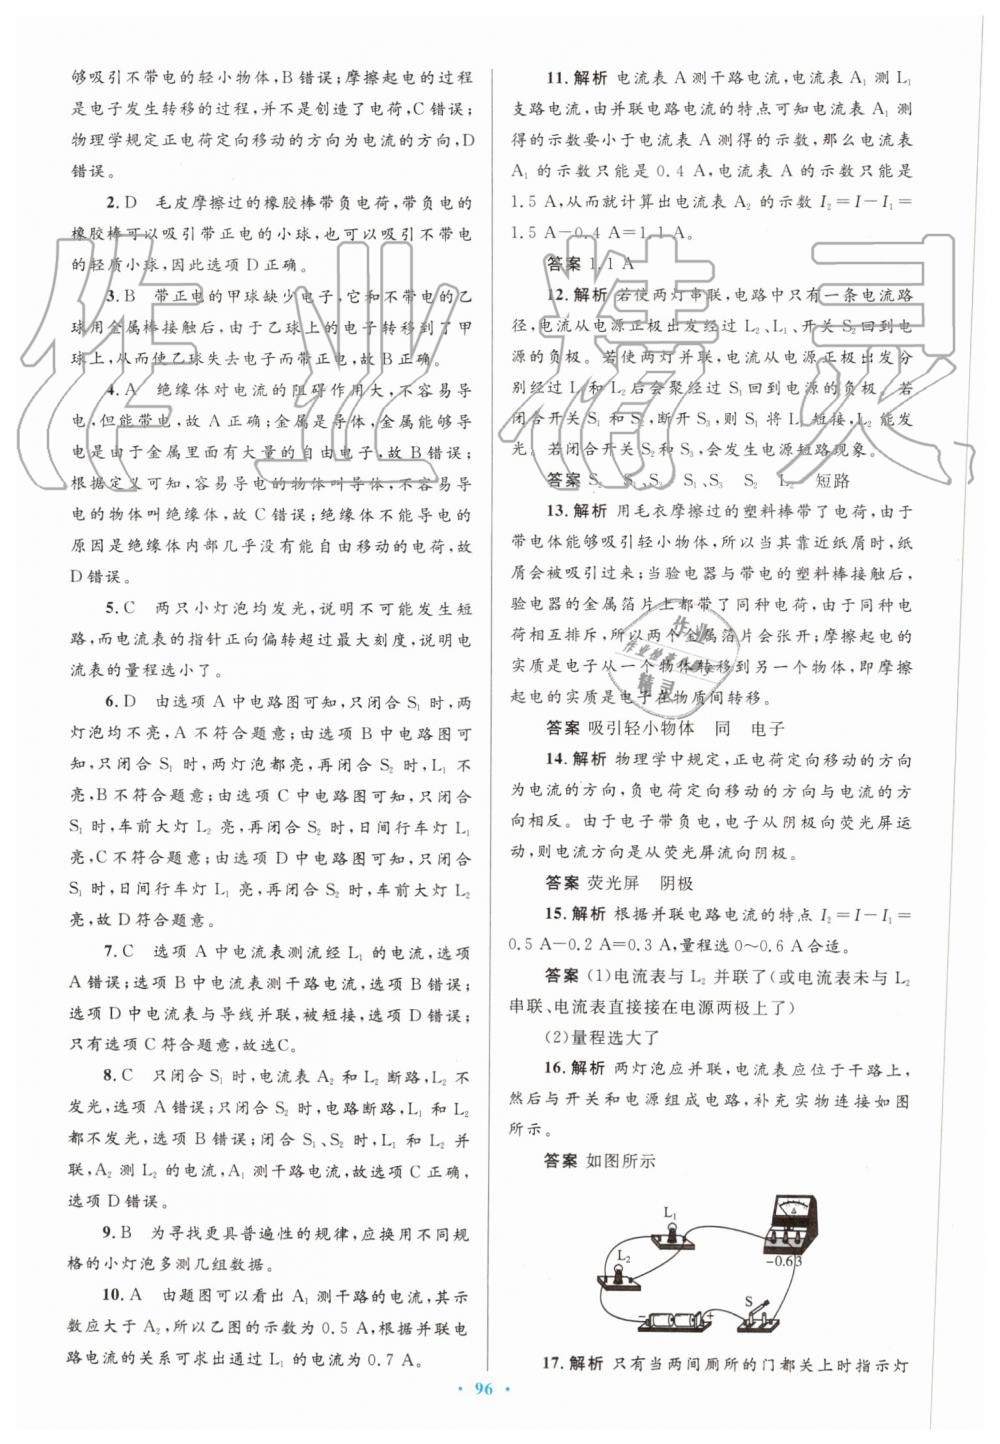 够吸引不带电的轻小物体,B错误;摩擦起电的过程
是电子发生转移的过程,并不是创造了电荷,C错误;
物理学规定正电荷定向移动的方向为电流的方向,D
错误。
2. D 毛皮摩擦过的橡胶棒带负电荷,带负电的
橡胶棒可以吸引带正电的小球,也可以吸引不带电
的轻质小球,因此选项D正确。
3. B 带正电的甲球缺少电子,它和不带电的乙
球用金属棒接触后,由于乙球上的电子转移到了甲
球上,从而使乙球失去电子而带正电,故B正确。
4. A 绝缘体对电流的阻碍作用大,不容易导
电,但能带电,故A正确;金属是导体,容易能够导
电是由于金属里面有大量的自由电子,故B错误;
根据定义可知,容易导电的物体叫导体,不容易导
电的物体叫绝缘体,故C错误;绝缘体不能导电的
原因是绝缘体内部几乎没有能自由移动的电荷,故
D错误。
5. C 两只小灯泡均发光,说明不可能发生短
路,而电流表的指针正向偏转超过最大刻度,说明电
流表的量程选小了。
6. D 由选项A中电路图可知,只闭合S₁时,两
灯泡均不亮,A不符合题意;由选项B中电路图可
知,只闭合S₁时,两灯泡都亮,再闭合S₂时,L₁不
亮,B不符合题意;由选项C中电路图可知,只闭合
S₁时,车前大灯L₂亮,再闭合S₂时,日间行车灯L₁
亮,C不符合题意;由选项D中电路图可知,只闭合
S₁时,日间行车灯L₁亮,再闭合S₂时,车前大灯L₂
亮,故D符合题意。
7. C 选项A中电流表测流经L₁的电流,选项
A错误;选项B中电流表测干路电流,选项B错误;
选项D中电流表与导线并联,被短接,选项D错误;
只有选项C符合题意,故选C。
8. C 只闭合S₁时,电流表A₂和L₂断路,L₂不
发光,选项A错误;只闭合S₂时,电路断路,L₁和L₂
都不发光,选项B错误;闭合S₁、S₂时,L₁和L₂并
联,A₂测L₂的电流,A₁测干路电流,故选项C正确,
选项D错误。
9. B 为寻找更具普遍性的规律,应换用不同规
格的小灯泡多测几组数据。
10. A 由题图可以看出A₁测干路的电流,其示
数应大于A₂,所以乙图的示数为0.5 A,根据并联电
路电流的关系可求出通过L₁的电流为0.7 A。
11. 解析 电流表A测干路电流,电流表A₁测L₁
支路电流,由并联电路电流的特点可知电流表A₁测
得的示数要小于电流表A测得的示数,那么电流表
A₁的示数只能是0.4 A,电流表A的示数只能是
1.5 A,从而就计算出电流表A₂的示数I₂=I-I₁=
1.5 A-0.4 A=1.1 A。
答案 1.1 A
12. 解析 若使两灯串联,电路中只有一条电流路
径,电流从电源正极出发经过L₂、L₁、开关S₂回到电
源的负极。若使两灯并联,电流从电源正极出发分
别经过L₁和L₂后会聚经过S₁回到电源的负极。若
闭合开关S₁和S₂,断开S₃,则S₁将L₁短接,L₂能发
光。若闭合开关S₂和S₃,会发生电源短路现象。
答案 S₂ S₁、S₃ S₁、S₃ S₂ L₂ 短路
13. 解析 用毛衣摩擦过的塑料棒带了电荷,由于
带电体能够吸引轻小物体,所以当其靠近纸屑时,纸
屑会被吸引过来;当验电器与带电的塑料棒接触后,
验电器的金属箔片上都带了同种电荷,由于同种电
荷相互排斥,所以两个金属箔片会张开;摩擦起电的
实质是电子从一个物体转移到另一个物体,即摩擦
起电的实质是电子在物质间转移。
答案 吸引轻小物体 同 电子
14. 解析 物理学中规定,正电荷定向移动的方向
为电流的方向,负电荷定向移动的方向与电流的方
向相反。由于电子带负电,电子从阴极向荧光屏运
动,则电流方向是从荧光屏流向阴极。
答案 荧光屏 阴极
15. 解析 根据并联电路电流的特点I₂=I-I₁=
0.5 A-0.2 A=0.3 A,量程选0～0.6 A合适。
答案 (1)电流表与L₂并联了(或电流表未与L₂
串联、电流表直接接在电源两极上了)
(2)量程选大了
16. 解析 两灯泡应并联,电流表应位于干路上,
然后与开关和电源组成电路,补充实物连接如图
所示。
答案 如图所示
L₁
A
L₂
-0.63
- +
S
17. 解析 只有当两间厕所的门都关上时指示灯
· 96 ·
作业精灵
作业
作业检查小助手
精灵